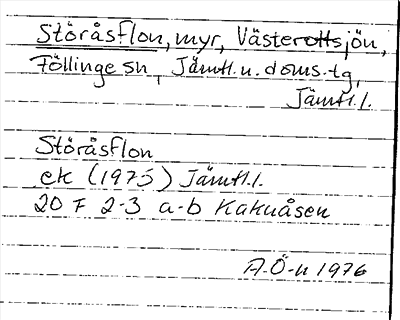 Störåsflon, myr, Västersjön,
Föllinge sn, Jämtl. n. doms.-tg,
Jämtl. l.
Störåsflon
ek (1975) Jämtl. l.
20 F 2-3 a-b Kakuåsen
A.Ö-n 1976